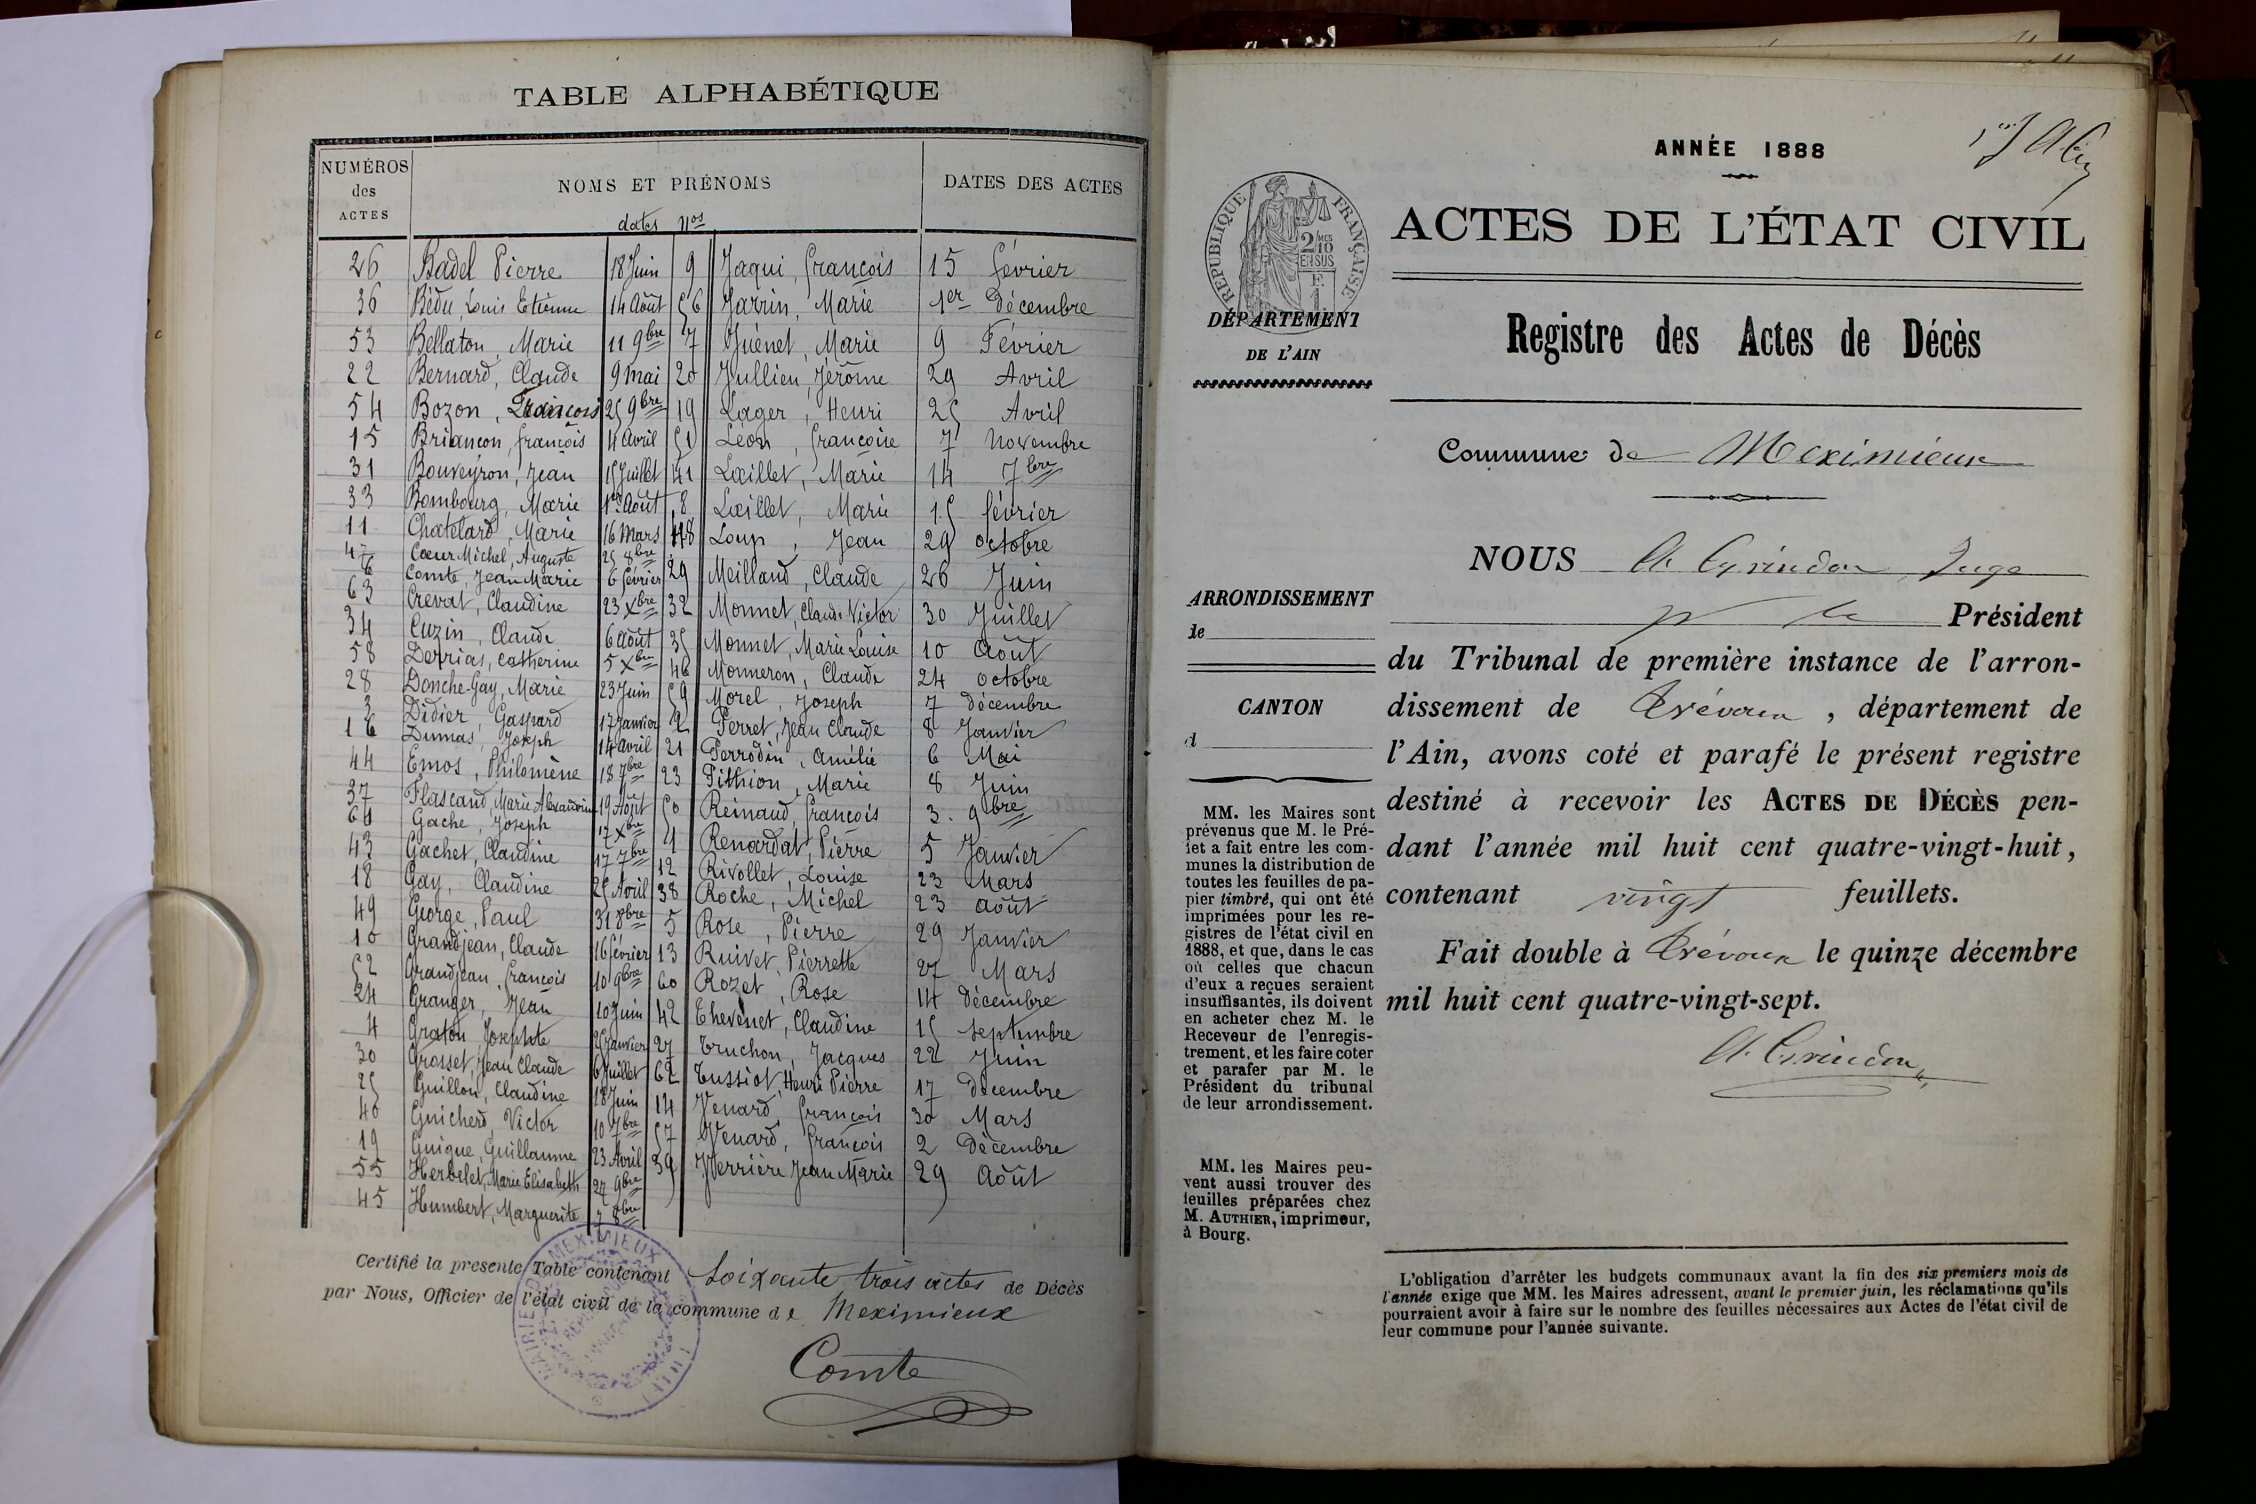 TABLE ALPHABÉTIQUE
NUMÉROS des ACTES
NOMS ET PRÉNOMS
DATES DES ACTES
dates nos
26 Badel Pierre 18 Juin 9 Jaqui, François 15 février
36 Bédu, Louis Etienne 14 Août 56 Jarrin, Marie 1er Décembre
53 Bellaton, Marie 11 9bre 7 Juénet, Marie 9 Février
22 Bernard, Claude 9 mai 20 Jullien, Jérôme 29 Avril
54 Bozon, François 25 9bre 19 Lager, Henri 25 Avril
15 Briançon, françois 4 Avril 51 Léon, françoise 7 Novembre
31 Bouveyron, Jean 15 Juillet 41 Lœillet, Marie 14 7bre
33 Bombourg, Marie 1er Août 8 Lœillet, Marie 15 février
11 Chatelard, Marie 16 Mars 48 Loup, Jean 29 octobre
47 Cœur Michel, Auguste 25 8bre
6 Comte, Jean Marie 6 février 29 Meilland, Claude 26 Juin
63 Crevat, Claudine 23 Xbre 32 Monnet, Claude Victor 30 Juillet
34 Cuzin, Claude 6 Août 35 Monnet, Marie Louise 10 Août
58 Derrias, Catherine 5 Xbre 46 Monneron, Claude 24 octobre
28 Donche-Gay, Marie 23 Juin 59 Morel, Joseph 7 décembre
3 Didier, Gaspard 17 Janvier 2 Perret, Jean Claude 8 Janvier
16 Dumas, Joseph 14 Avril 21 Perrodin, Amélie 6 Mai
44 Emos, Philomène 18 7bre 23 Pithion, Marie 8 Juin
37 Flascaud, Marie Alexandrine 19 Août 50 Reinaud, françois 3 9bre
61 Gache, Joseph 17 Xbre 1 Renardat, Pierre 5 Janvier
43 Gachet, Claudine 17 7bre 12 Rivollet, Louise 23 Mars
18 Gay, Claudine 25 Avril 38 Roche, Michel 23 août
49 George, Paul 31 8bre 5 Rose, Pierre 29 Janvier
10 Grandjean, Claude 16 février 13 Ruivet, Pierrette 27 Mars
52 Grandjean, françois 10 9bre 60 Rozet, Rose 14 décembre
24 Granger, Jean 10 Juin 42 Thevenet, Claudine 15 septembre
4 Graton, Josephte 25 Janvier 27 Truchon, Jacques 22 Juin
30 Grosset, Jean Claude 6 Juillet 62 Tussiot, Henri Pierre 17 décembre
25 Guillon, Claudine 18 Juin 14 Venard, françois 30 Mars
40 Guicherd, Victor 10 7bre 57 Venard, françois 2 Décembre
19 Guigue, Guillaume 23 Avril 39 Verrière Jean Marie 29 Août
55 Herbelet, Marie Elisabeth 27 9bre
45 Humbert, Marguerite 7 8bre
Certifié la presente Table contenant Soixante trois actes de Décès
par Nous, Officier de l'état civil de la commune de Meximieux
MAIRIE DE MEXIMIEUX
Comte
ANNÉE 1888
RÉPUBLIQUE FRANÇAISE
2/10 EN SUS
ACTES DE L'ÉTAT CIVIL
DÉPARTEMENT
DE L'AIN
Registre des Actes de Décès
Commune de Meximieux
NOUS A. Grindon, Juge
Président
du Tribunal de première instance de l'arron-
dissement de Trévoux, département de
l'Ain, avons coté et parafé le présent registre
destiné à recevoir les ACTES DE DÉCÈS pen-
dant l'année mil huit cent quatre-vingt-huit,
contenant vingt feuillets.
Fait double à Trévoux le quinze décembre
mil huit cent quatre-vingt-sept.
A. Grindon
ARRONDISSEMENT
de
CANTON
d
MM. les Maires sont
prévenus que M. le Pré-
fet a fait entre les com-
munes la distribution de
toutes les feuilles de pa-
pier timbré, qui ont été
imprimées pour les re-
gistres de l'état civil en
1888, et que, dans le cas
où celles que chacun
d'eux a reçues seraient
insuffisantes, ils doivent
en acheter chez M. le
Receveur de l'enregis-
trement, et les faire coter
et parafer par M. le
Président du tribunal
de leur arrondissement.
MM. les Maires peu-
vent aussi trouver des
feuilles préparées chez
M. AUTHIER, imprimeur,
à Bourg.
L'obligation d'arrêter les budgets communaux avant la fin des six premiers mois de
l'année exige que MM. les Maires adressent, avant le premier juin, les réclamations qu'ils
pourraient avoir à faire sur le nombre des feuilles nécessaires aux Actes de l'état civil de
leur commune pour l'année suivante.